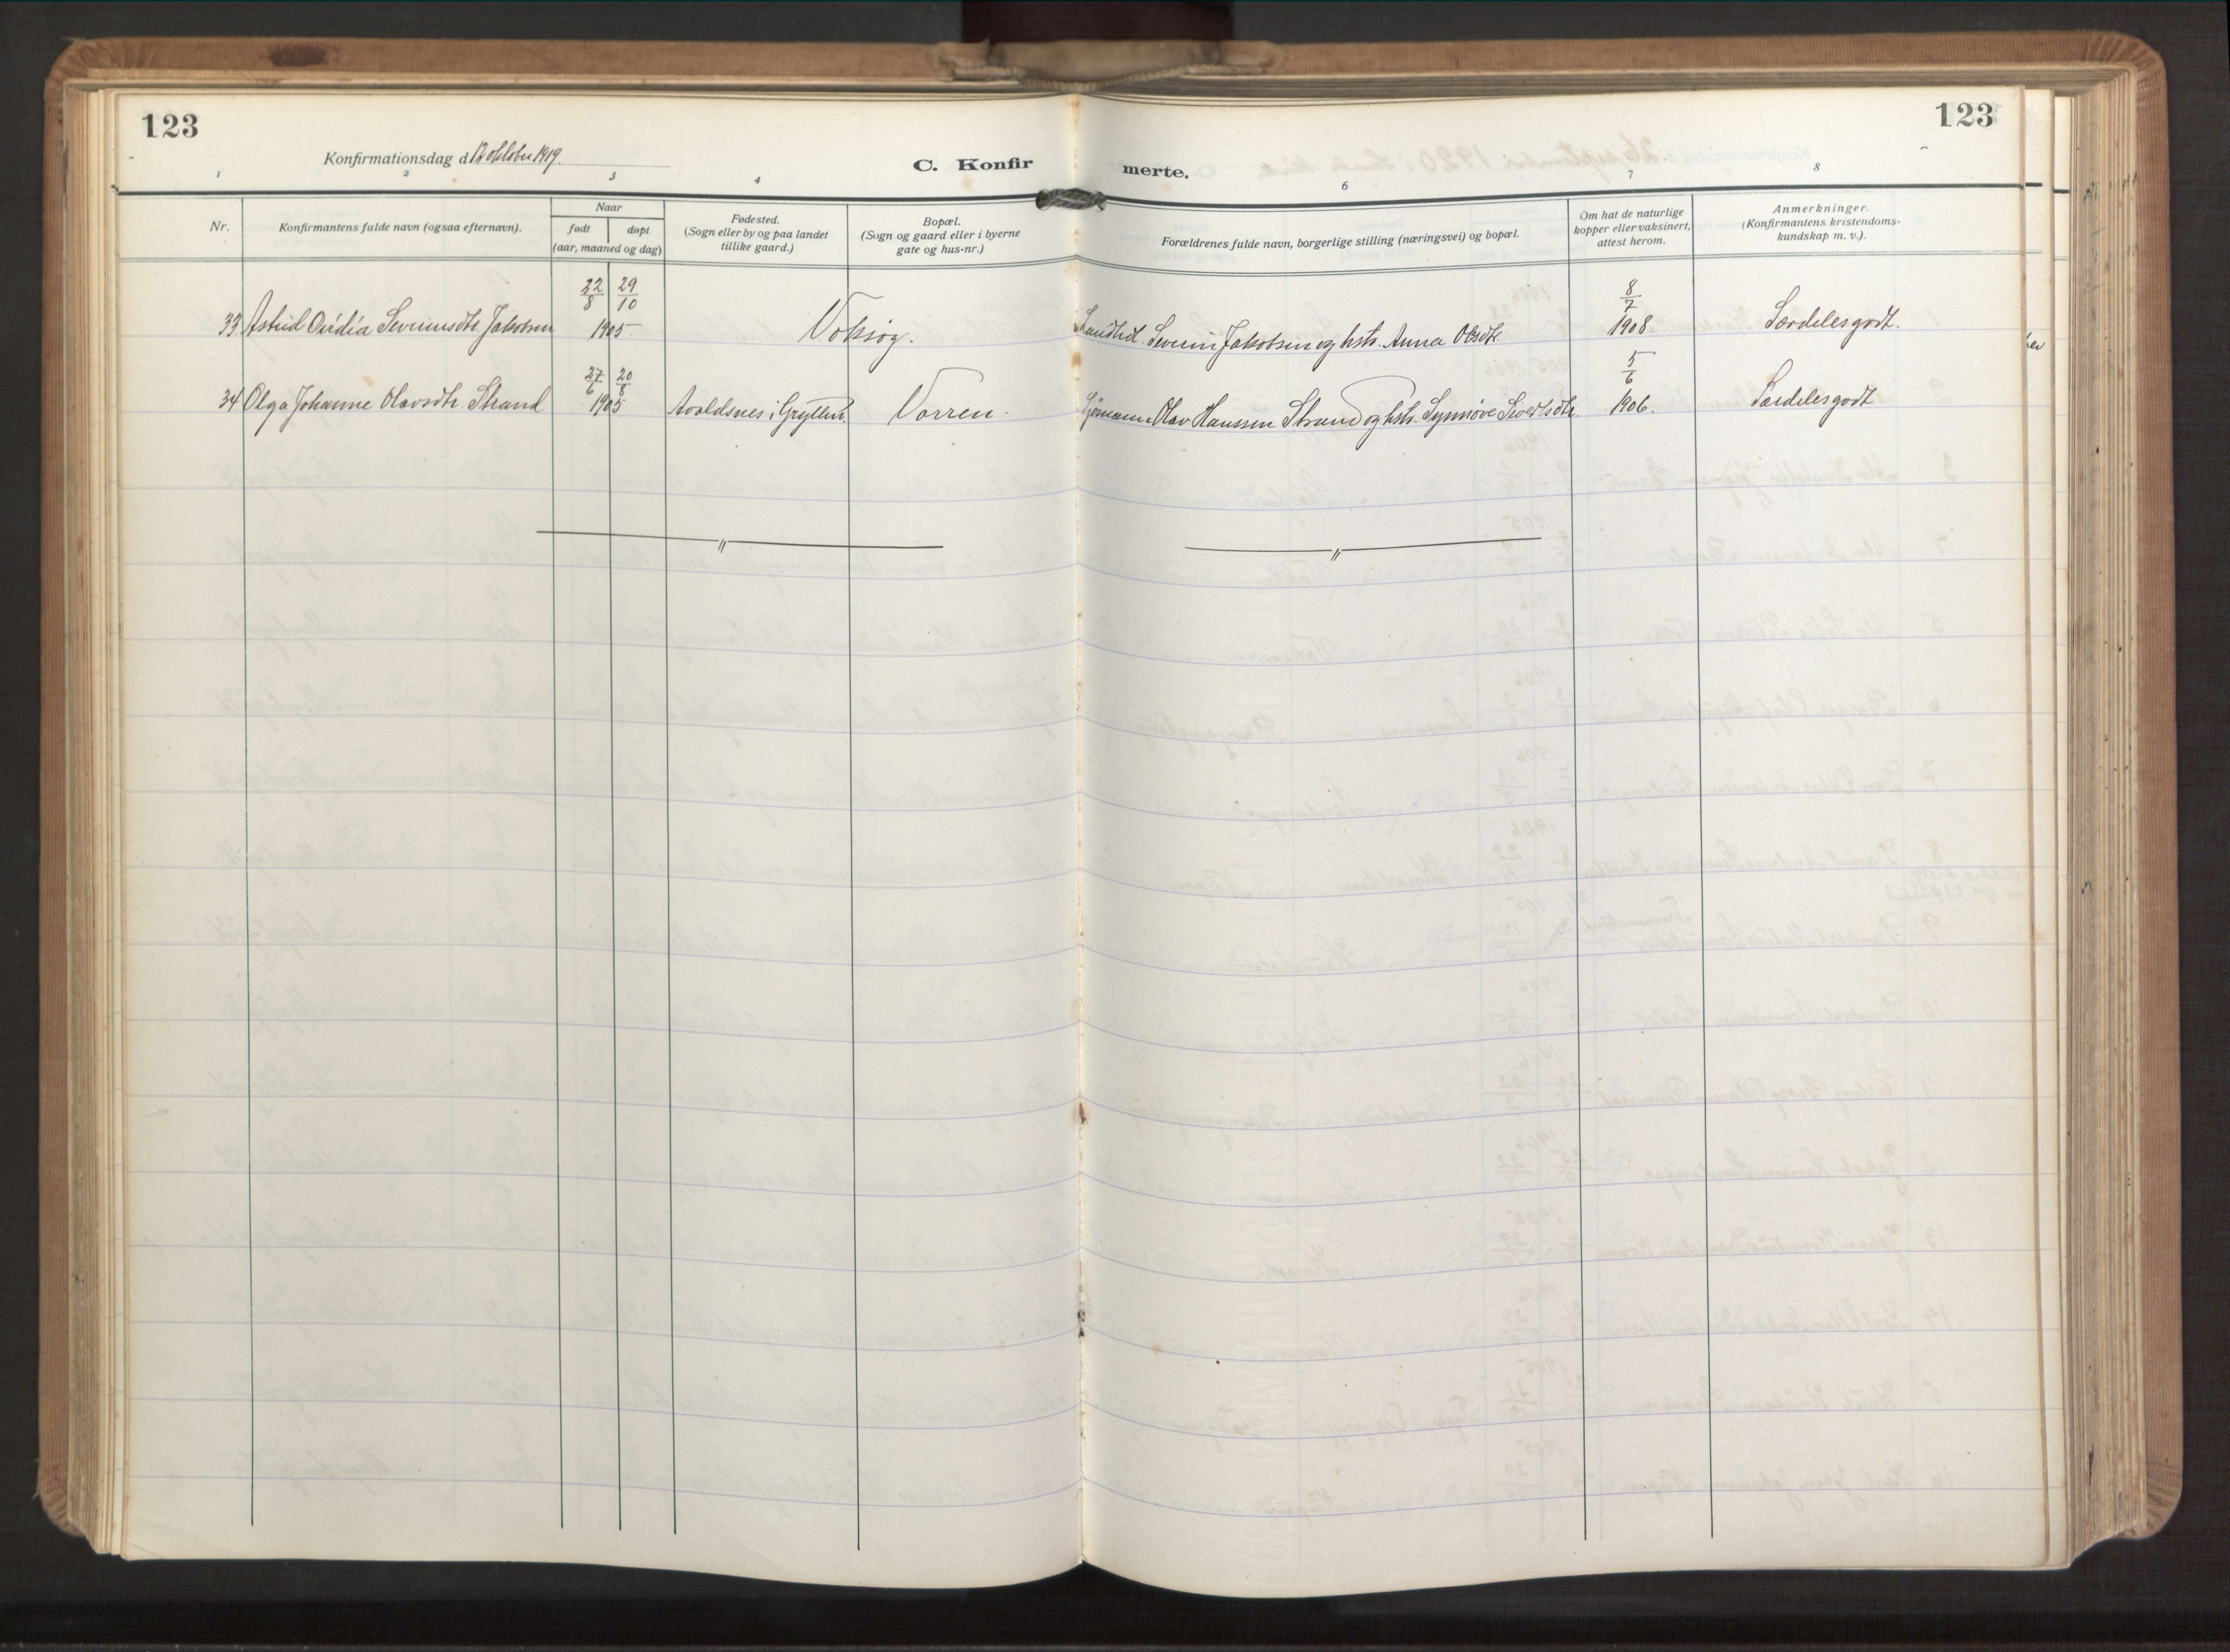 123
123
Konfirmationsdag d 12 oktober 1919.
C. Konfir merte.
1 2 3 4 6 7 8
Nr.
Konfirmantens fulde navn (ogsaa efternavn).
Naar
født døpt
(aar, maaned og dag)
Fødested.
(Sogn eller by og paa landet
tillike gaard.)
Bopæl.
(Sogn og gaard eller i byerne
gate og hus-nr.)
Forældrenes fulde navn, borgerlige stilling (næringsvei) og bopæl.
Om hat de naturlige
kopper eller vaksinert,
attest herom.
Anmerkninger.
(Konfirmantens kristendoms-
kundskap m. v.).
22/8 29/10 8/7
33 Astrid Ovidia Severinsdtr. Jakobsen 1905 Voksøy. Severin Jakobsen og hstr. Anna Olsdtr. 1908. Særdeles godt.
27/6 20/8 5/6
34 Olga Johanne Olavsdtr. Strand 1905 Avaldsnes i Gryttens Vorren. Olav Hanssen Strand og hstr. Synnöve Sivertsdtr. 1906. Særdeles godt
〃 〃